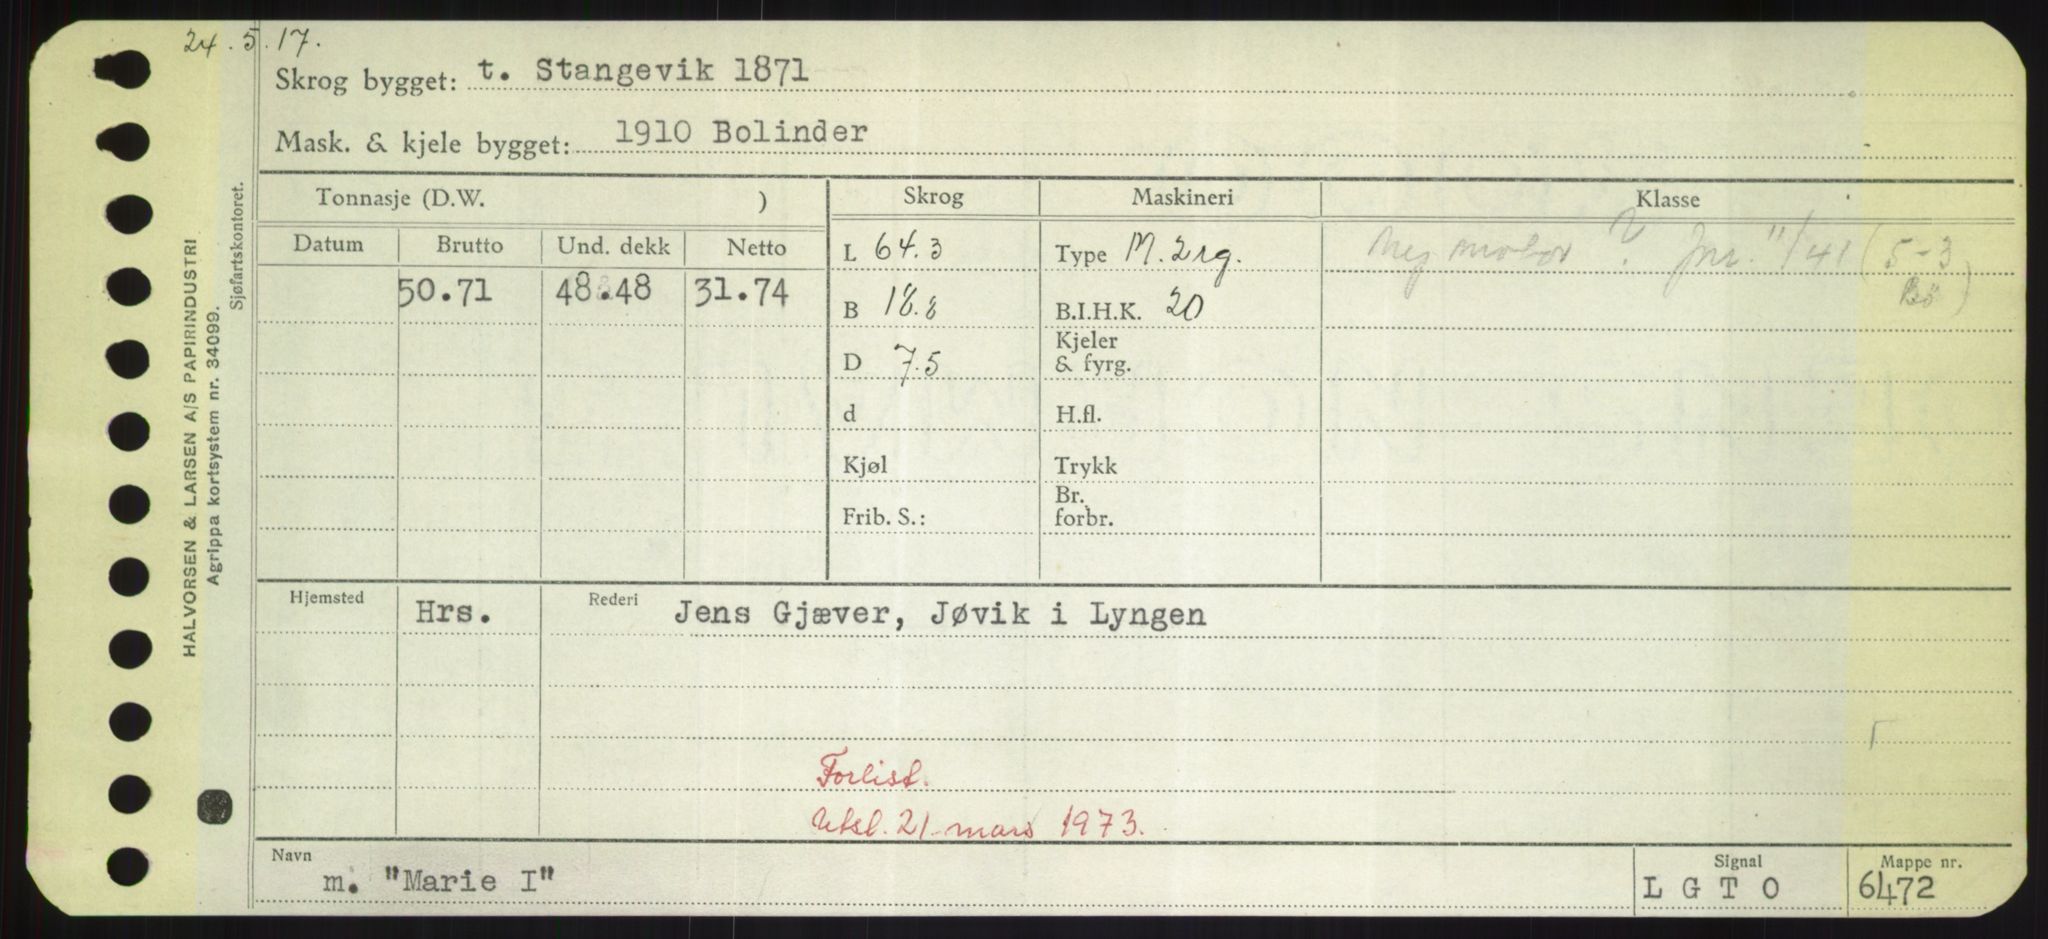 24.5.17.
Skrog bygget: t. Stangevik 1871
Mask. & kjele bygget: 1910 Bolinder
Tonnasje (D.W. ) Skrog Maskineri Klasse
Datum Brutto Und. dekk Netto
L 64.3 Type M. 2 rg. Ny motor ? Jnr. 11/41 (5-3
50.71 48.48 31.74
B 18.8 B.I.H.K. 20 Bö)
D 7.5 Kjeler
& fyrg.
d H.fl.
Kjøl Trykk
Frib. S.: Br.
forbr.
Hjemsted Hrs. Rederi Jens Gjæver, Jøvik i Lyngen
Forlist.
Utsl. 21. mars 1973.
Navn m. "Marie I"
Signal L G T O
Mappe nr. 6472
HALVORSEN & LARSEN A/S PAPIRINDUSTRI
Agrippa kortsystem nr. 34099.
Sjøfartskontoret.